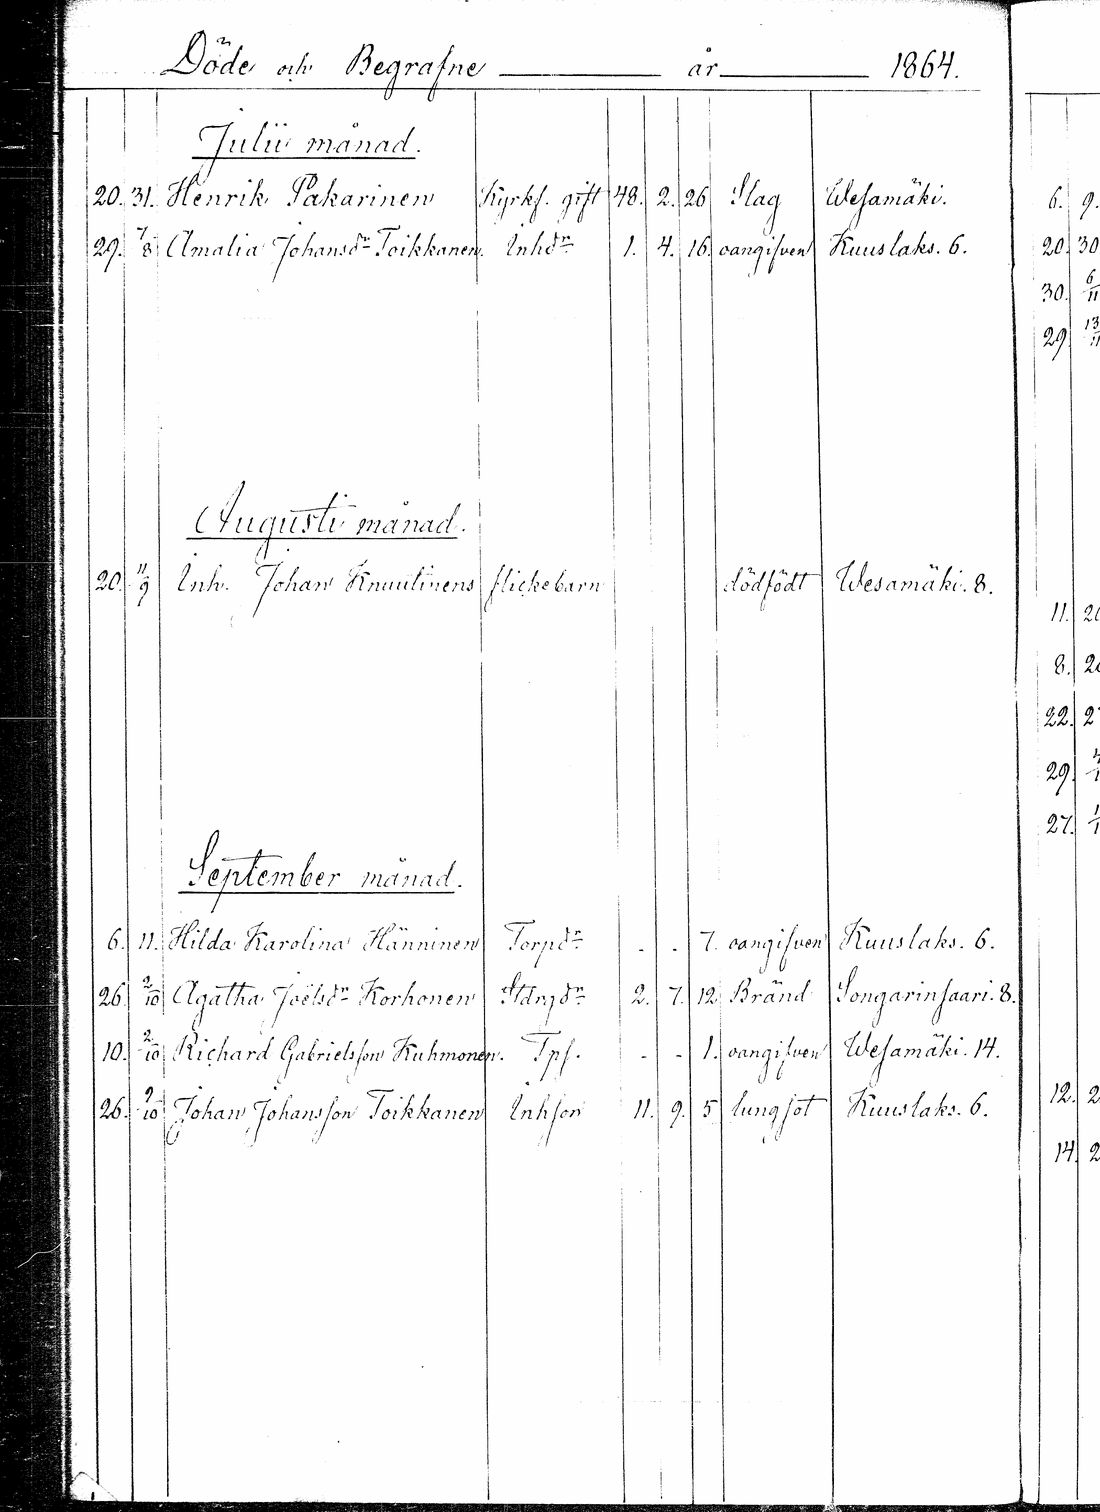 Döde och Begrafne år 1864.
Julii månad.
20. 31. Henrik Pakarinen Kyrkf. gift 48. 2. 26 Slag Wesamäki.
29. 7/8 Amalia Johansdr Toikkanen. Inhdr 1. 4. 16. oangifven Kuuslaks. 6.
Augusti månad.
20. 11/9 Inh. Johan Knuutinens flickebarn dödfödt Wesamäki. 8.
September månad.
6. 11. Hilda Karolina Hänninen Torpdr - - 7. oangifven Kuuslaks. 6.
26. 2/10 Agatha Joëlsdr Korhonen 2. 7. 12 Bränd Songarinsaari. 8.
10. 2/10 Richard Gabrielsson Kuhmonen. Tps. - - 1. oangifven Wesamäki. 14.
26. 9/10 Johan Johansson Toikkanen Inhson 11. 9. 5 lungsot Kuuslaks. 6.
6. 9.
20. 30
30. 6/11
29. 13/11
11.
8.
22.
29.
27.
12.
14.